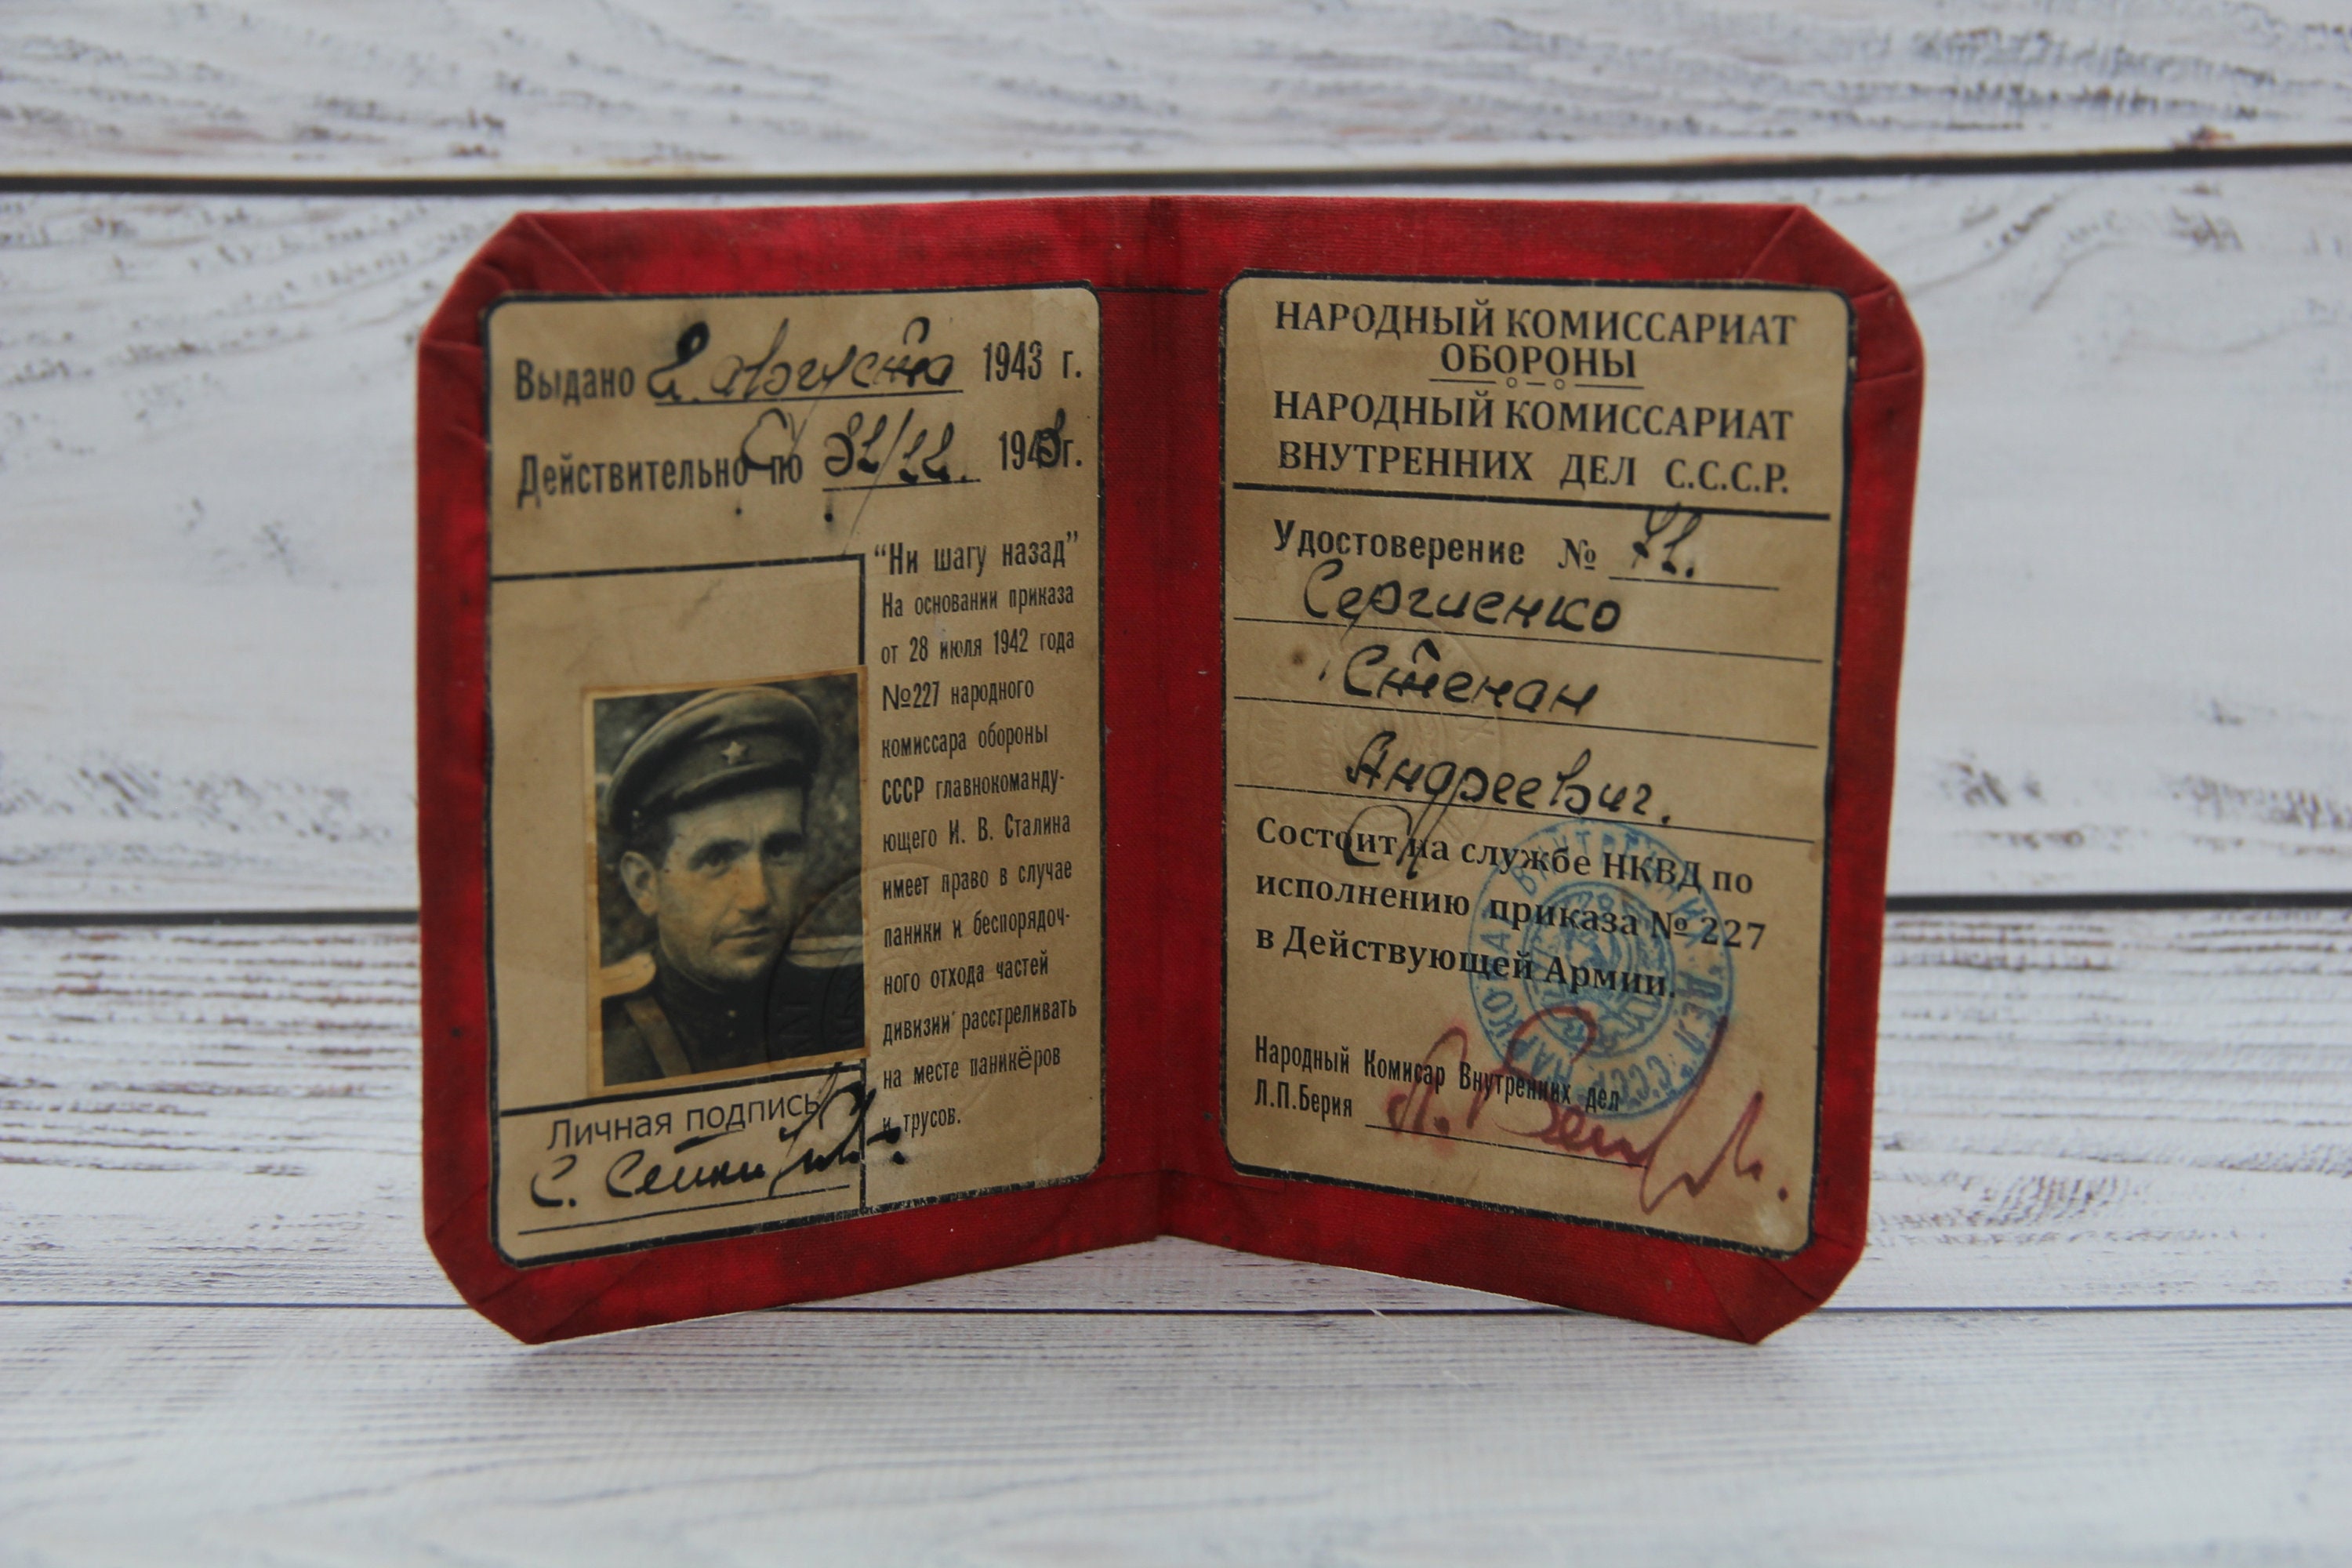 Выдано 2. августа 1943 г.
Действительно по 31/12. 1943г.
“Ни шагу назад”
На основании приказа
от 28 июля 1942 года
№227 народного
комиссара обороны
СССР главнокоманду-
ющего И. В. Сталина
имеет право в случае
паники и беспорядоч-
ного отхода частей
дивизии расстреливать
на месте паникёров
и трусов.
Личная подпись
НАРОДНЫЙ КОМИССАРИАТ
ОБОРОНЫ
НАРОДНЫЙ КОМИССАРИАТ
ВНУТРЕННИХ ДЕЛ С.С.С.Р.
Удостоверение №
Сергиенко
Степан
Андреевич.
Состоит на службе НКВД по
исполнению приказа № 227
в Действующей Армии.
Народный Комисар Внутренних дел
Л.П.Берия